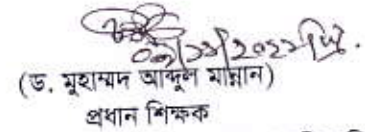 ০১/১১/২০২২খ্রি.
(ড. মুহাম্মদ আব্দুল মান্নান)
প্রধান শিক্ষক